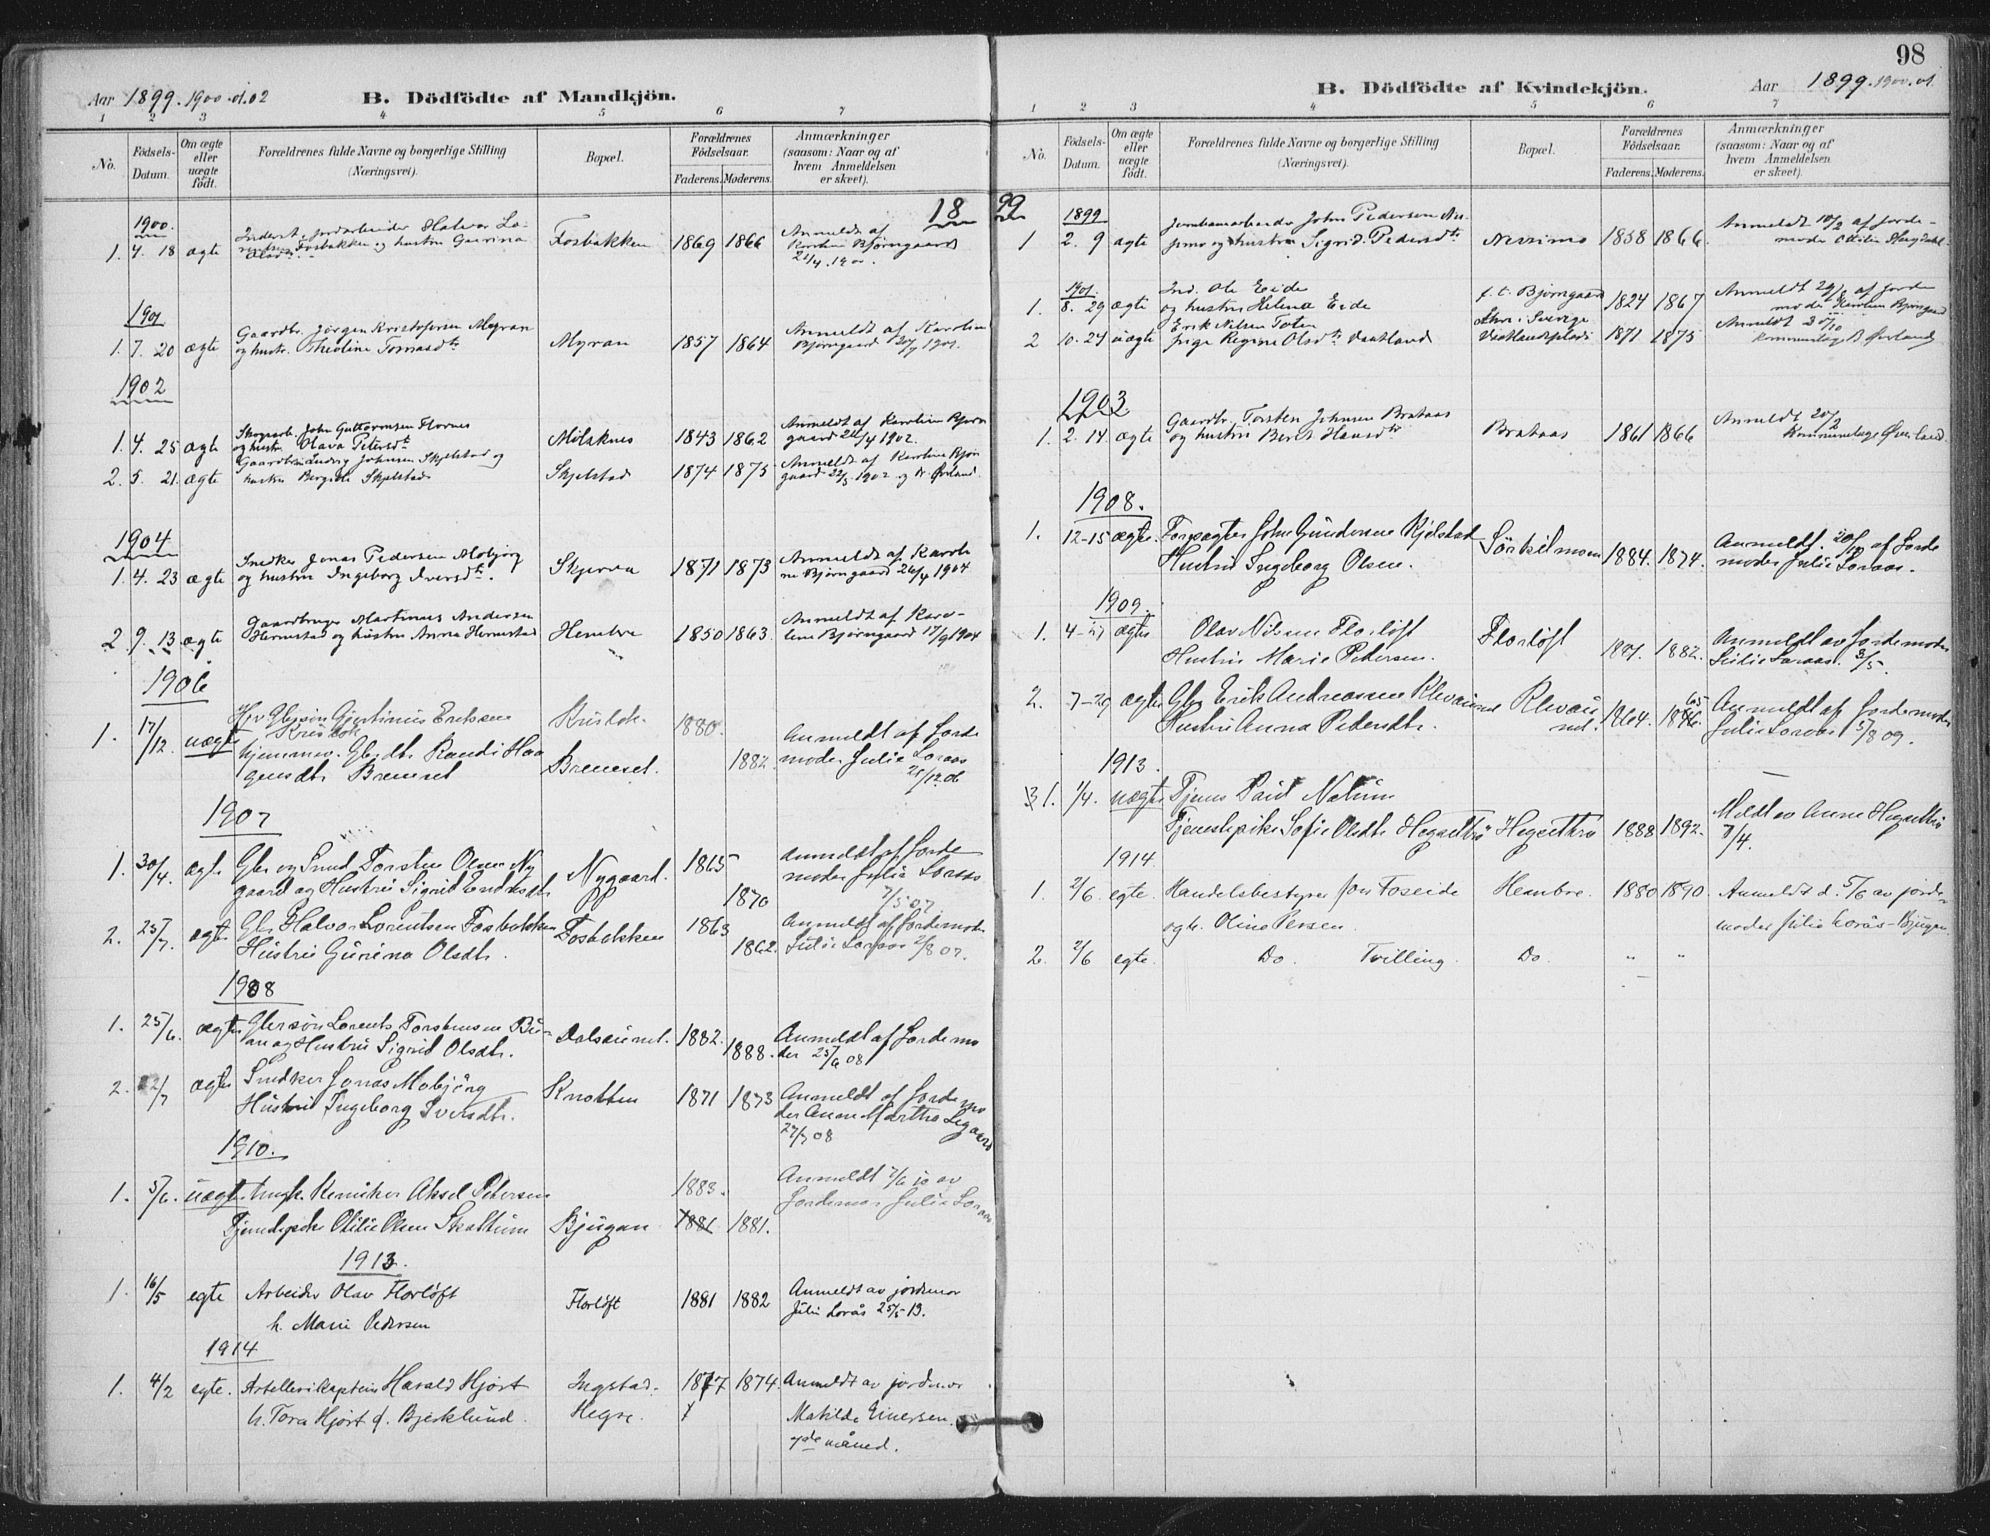 Aar 1899. 1900-01.02
B. Dödfödte af Mandkjön.
1 2 3 4 5 6 7
No.
Födsels-
Datum.
Om ægte
eller
uægte
födt.
Forældrenes fulde Navne og borgerlige Stilling
(Næringsvei).
Bopæl.
Forældrenes
Födselsaar.
Faderens. Moderens.
Anmærkninger
(saasom: Naar og af
hvem Anmeldelsen
er skeet).
18
1900.
1. 4. 18 ægte Inderst, jordarbeider Halvor Lo-
rentsen Fosbakken og hustru Gurina
Olsdtr.
Fosbakken 1869 1866
Anmeldt af
Karolin Bjørngaard
21/4. 1900.
1901
1. 7. 20 ægte Gaardbr. Jörgen Kristofersen Myran
og hustr. Tomasdtr
Myran 1857 1864
Anmeldt af Karolin
Bjørngaard 1901.
1902
1. 4. 25 ægte Skogarb. John Guttormsen Flornes
og hustru Olava Petersdtr
Milsknes 1843 1862
Anmeldt af Karolin Bjørn
gaard 26/4 1902.
2. 5. 21 ægte Gaardbr. Ludvig Johnsen Skjelstad og
hustru Skjelstad
Skjelstad 1874 1875
Anmeldt af Karoline Bjørn
gaard 22/5 1902 og Dr. Øverland.
1904
1. 4. 23 ægte Snedker Jonas Pedersen Mobjørg
og hustru Ingeborg Iversdtr.
Skjerva 1871 1873
Anmeldt af Karoli
ne Bjørngaard 26/4 1904
2. 9. 13 ægte Gaardbruger Martinus Andersen
Hernestad og hustru Anna Hernestad
Hembre 1850 1863.
Anmeldt af Karo-
line Bjørngaard 17/9 1904
1906
1. 17/12 uægte Gbrsøn Gjertinus Eriksen
hjemmev. Gbrdtr Randi Haa
gensdtr Bremset
Bremset. 1880. 1882.
Anmeldt af Jorde
moder Julie Loraas
1907
1. 30/4. ægte Gbr og Smed Torsten Olsen Ny
gaard og Hustru Sigrid Endresdtr
Nygaard. 1865 1870
Anmeldt af Jorde
moder Julie Loraas
7/5 07.
2. 25/7. ægte Gbr Halvor Lorentsen Fosbakken
Hustru Gurina Olsdtr.
Fosbakken 1863 1862.
Anmeldt af Jordemoder
Julie Loraas 2/8 07.
1908
1. 25/6. ægte Gbrsøn Lorents Torstensen Bu-
an og Hustru Sigrid Olsdtr.
Dalsaunet. 1882. 1888.
Anmeldt af Jordemo
der 25/6 08
2. 22/7 ægte Snedker Jonas Mobjörg
Hustru Ingeborg Iversdtr.
Knotten 1871 1873
Anmeldt af Jordemo
der Anne Martha Legaard
27/7 08
1910.
1. 5/6. uægte Kemiker Aksel Petersen
Tjenestepike Otilie Olsen Skattum
Bjugan 1883. 1881 1881.
Anmeldt 7/6 10 av
Jordemor Julie Loraas
1913.
1. 16/5 egte Arbeider Olav Florløft
h. Marie Pedersen
Florløft 1881 1882
Anmeldt av jordemor
Julie Lorås 25/5-13.
1914
1. 4/2 egte. Artellerikaptein Harald Hjort
h. Tora Hjort f. Bjerklund.
Ingstad.
Hegre. 1877 1874.
Anmeldt av jordemor
Matilde Einersen.
7de måned.
98
B. Dödfödte af Kvindekjön.
Aar 1899. 1900. 01.
1 2 3 4 5 6 7
No.
Födsels-
Datum.
Om ægte
eller
uægte
födt.
Forældrenes fulde Navne og borgerlige Stilling
(Næringsvei).
Bopæl.
Forældrenes
Födselsaar.
Faderens. Moderens.
Anmærkninger
(saasom: Naar og af
hvem Anmeldelsen
er skeet).
99
1899
1 2. 9 ægte Jernbanarbeider John Pedersen
og hustru Sigrid Pedersdtr
1858 1866.
Anmeldt 10/2 af Jorde-
moder Otilie Haugdahl
1901.
1. 8. 29 ægte Ind. Ole Eide
og hustru Helena Eide
f. t. Bjørngaard 1824 1867
Anmeldt af Jorde
moder Karolin Bjørngaard
2 10. 24 uægte Erik Nilsen Toten
pige Regine Olsdtr Vaatland
Åre i Sverige
Vaatlandsplads 1871 1875
Anmeldt
kommunelæge B. Øverland
1903
1. 2. 14 ægte Gaardbr. Torsten Johnsen Brataas
og hustru Beret Hansdtr
Brataas 1861 1866
Anmeldt 20/2
Kommunelæge Øverland.
1908.
1. 12-15 ægte. Forpagter John Gundersen Kjelstad
Hustru Ingeborg Olsen.
Sørkilmoen 1884. 1874.
Anmeldt 20/1 af Jorde
moder Julie Loraas.
1909.
1. 4-27 ægte Olav Nilsen Florløft
Hustru Marie Petersen.
Florløft 1882.
Anmeldt av Jordemoder
Julie Loraas. 3/5.
2. 7-29 ægte Gbr Erik Andreassen Klevaunet
Hustru Anna Petersdtr.
Klevau
net. 1864. 65
Anmeldt af Jordemoder
Julie Loraas 5/8 09.
1913.
1. 1/4. uægte Tjener Paul
Tjenestepike Sofie Olsdtr Hegsethrø
Hegsethrø 1888 1892.
Meldt av Anne Hegsethrø
7/4.
1914.
1. 2/6. egte. Handelsbestyrer Jon Foseide
og h. Oline Persen.
Heambre. 1880 1890.
Anmeldt d. 5/6 av jorde-
moder Julie Lorås-Bjugan.
2. 2/6 egte. Do. Tvilling. Do. " "